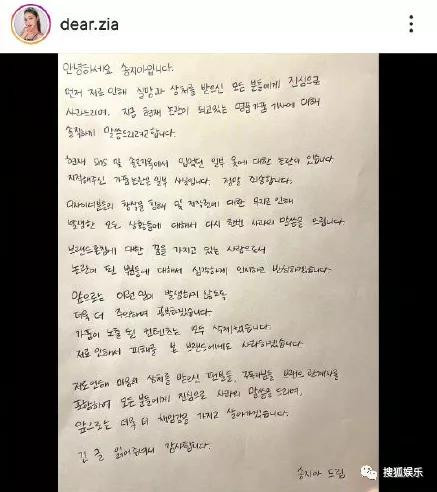 dear.zia
안녕하세요 송지아입니다.
먼저 저로 인해 실망과 상처를 받으신 모든 분들에게 진심으로
사과드리며, 지금 현재 논란이 되고있는 명품 가품 기사에 대해
솔직하게 말씀드리려고합니다.
현재 SNS 및 솔로지옥에서 입었던 일부 옷에 대한 논란이 있습니다
지적해주신 가품논란은 일부 사실입니다. 정말 죄송합니다.
디자이너분들의 창작물 침해 및 저작권에 대한 무지로 인해
발생한 모든 상황들에 대해서 다시 한번 사과의 말씀을 드립니다.
브랜드론칭에 대한 꿈을 가지고 있는 사람으로서
논란이 된 부분들에 대해서 심각하게 인지하고 반성하겠습니다.
앞으로는 이런 일이 발생하지 않도록
더욱 더 주의하며 공부하겠습니다.
가품이 노출 된 컨텐츠는 모두 삭제했습니다.
저로 인해서 피해를 본 브랜드에게도 사과하겠습니다.
저로인해 마음의 상처를 받으신 팬분들, 구독자분들 브랜드 관계자를
포함하여 모든 분들에게 진심으로 사과의 말씀을 드리며,
앞으로는 더욱 더 책임감을 가지고 살아가겠습니다.
긴 글 읽어주셔서 감사합니다.
송지아 드림
搜狐娱乐